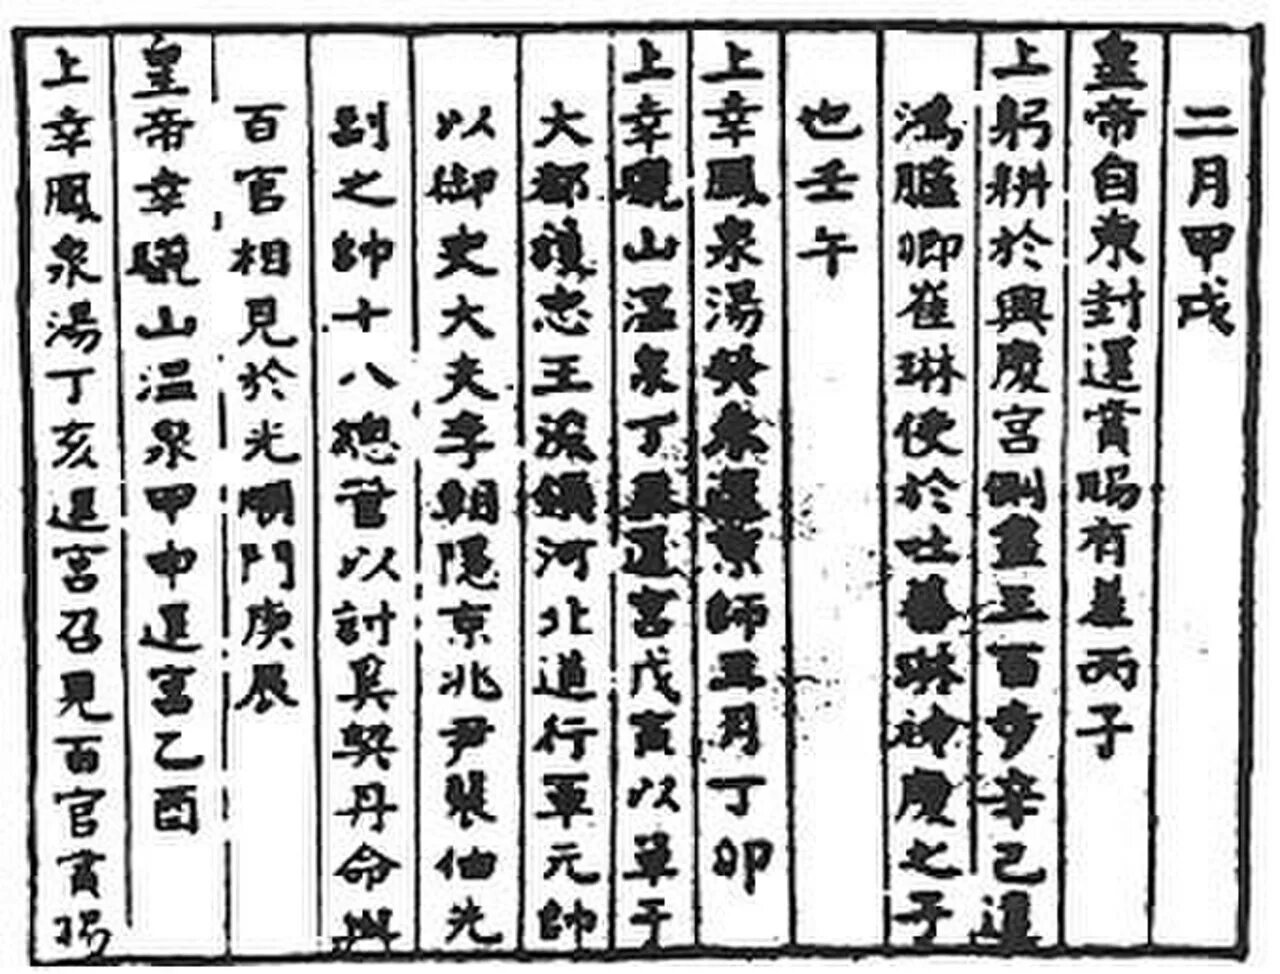 二月甲戌
皇帝自東封還賞賜有差丙子
上躬耕於興慶宮側盡三百步辛巳遣
鴻臚卿崔琳使於吐蕃琳神慶之子
也壬午
上幸鳳泉湯癸未還京師五月丁卯
上幸驪山溫泉丁丑還宮戊寅以單于
大都護忠王浚領河北道行軍元帥
以御史大夫李朝隱京兆尹裴伷光
副之帥十八總管以討奚契丹命與
百官相見於光順門庚辰
皇帝幸驪山溫泉甲申還宮乙酉
上幸鳳泉湯丁亥還宮召見百官賞賜